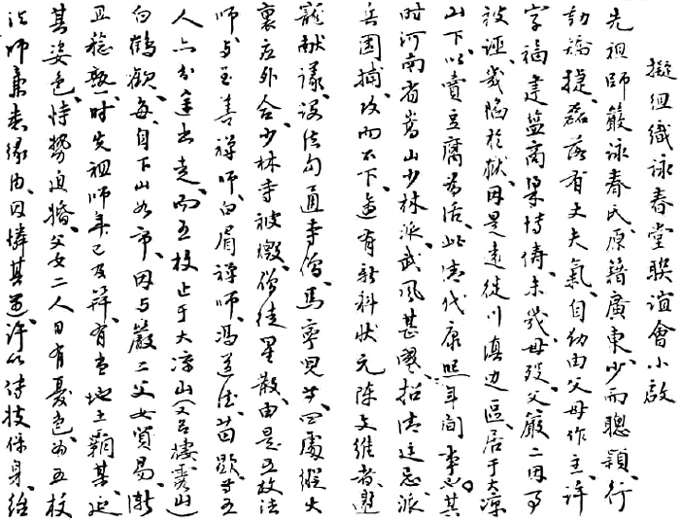 擬組織詠春堂聯誼會小啟
先祖師嚴詠春氏原籍廣東少而聰穎行
動矯捷、磊落有丈夫氣、自幼由父母作主、許
字福建盐商梁博儔、未幾母歿、父嚴二因事
被誣、幾陷於獄、因是遠徙川滇边區、居于大凉
山下、以賣豆腐為活、此清代康熙年間事也、其
时河南省嵩山少林派武風甚盛、招清廷忌派
兵圍捕、攻而不下、適有新科狀元陳文維者、邀
寵献議、設法勾通寺僧、馬寧兒等、四處縱火
裏应外合、少林寺被燬、僧徒星散、由是五枚法
师與至善禪师、白眉禪师、馮道德、苗顯等五
人亦分途出走、而五枚止于大凉山(又名棲霞山)
白鶴觀、每自下山如市、因与嚴二父女貿易、漸
且稔熟、时先祖师年已及笄、有当地土覇某、延
其姿色、恃勢迫婚、父女二人日有憂色、為五枚
法师稟悉缘由、因憐其遇、许以傳技保身、